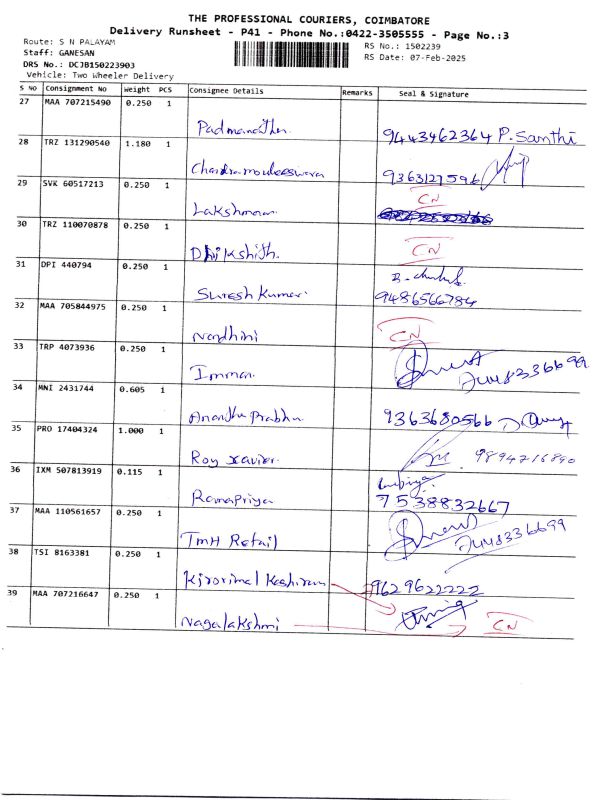 THE PROFESSIONAL COURIERS, COIMBATORE
Delivery Runsheet - P41 - Phone No.:0422-3505555 - Page No.:3
Route: S N PALAYAM
RS No.: 1502239
Staff: GANESAN
RS Date: 07-Feb-2025
DRS No.: DCJB150223903
Vehicle: Two Wheeler Delivery
S NO Consignment No Weight PCS Consignee Details Remarks Seal & Signature
27 MAA 707215490 0.250 1
Padmanathn 9443462364 P. Santhi
28 TRZ 131290540 1.180 1
Chandramouleeswara 9363127596
29 SVK 60517213 0.250 1 CN
Lakshmanan
30 TRZ 110070878 0.250 1
Dhikshith. CN
31 DPI 440794 0.250 1
Suresh Kumar 9486566784
32 MAA 705844975 0.250 1
Nandhini CN
33 TRP 4073936 0.250 1
Imman 7448336699
34 MNI 2431744 0.605 1
Anandha Prabhu 9363680566
35 PRO 17404324 1.000 1
Roy xavier. 9894216890
36 IXM 507813919 0.115 1
Ramapriya 7538832667
37 MAA 110561657 0.250 1
TMH Retail 7448336699
38 TSI 8163381 0.250 1
Kirorimal Kashiram 9629622222
39 MAA 707216647 0.250 1
Nagalakshmi CN